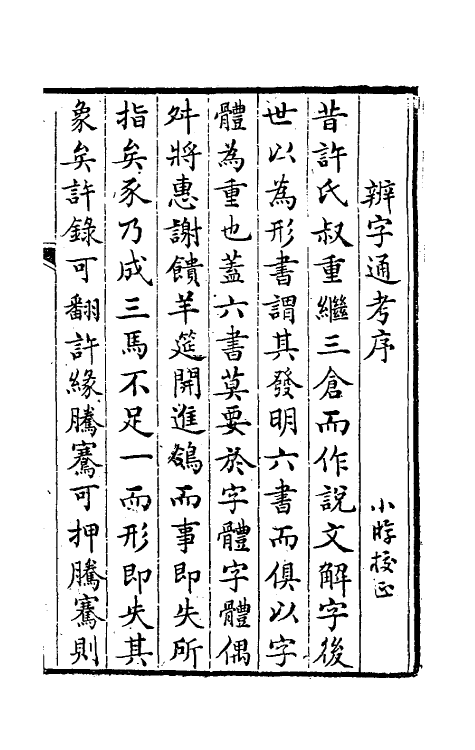 辨字通考序
小瞕授正
昔許氏叔重繼三倉而作說文解字後
世以為形書謂其發明六書而俱以字
體為重也蓋六書莫要於字體字體偶
舛將惠謝饋羊筵開進鵒而事即失所
指矣豕乃成三馬不足一而形即失其
象矣許錄可翻許緣騰騫可押騰騫則